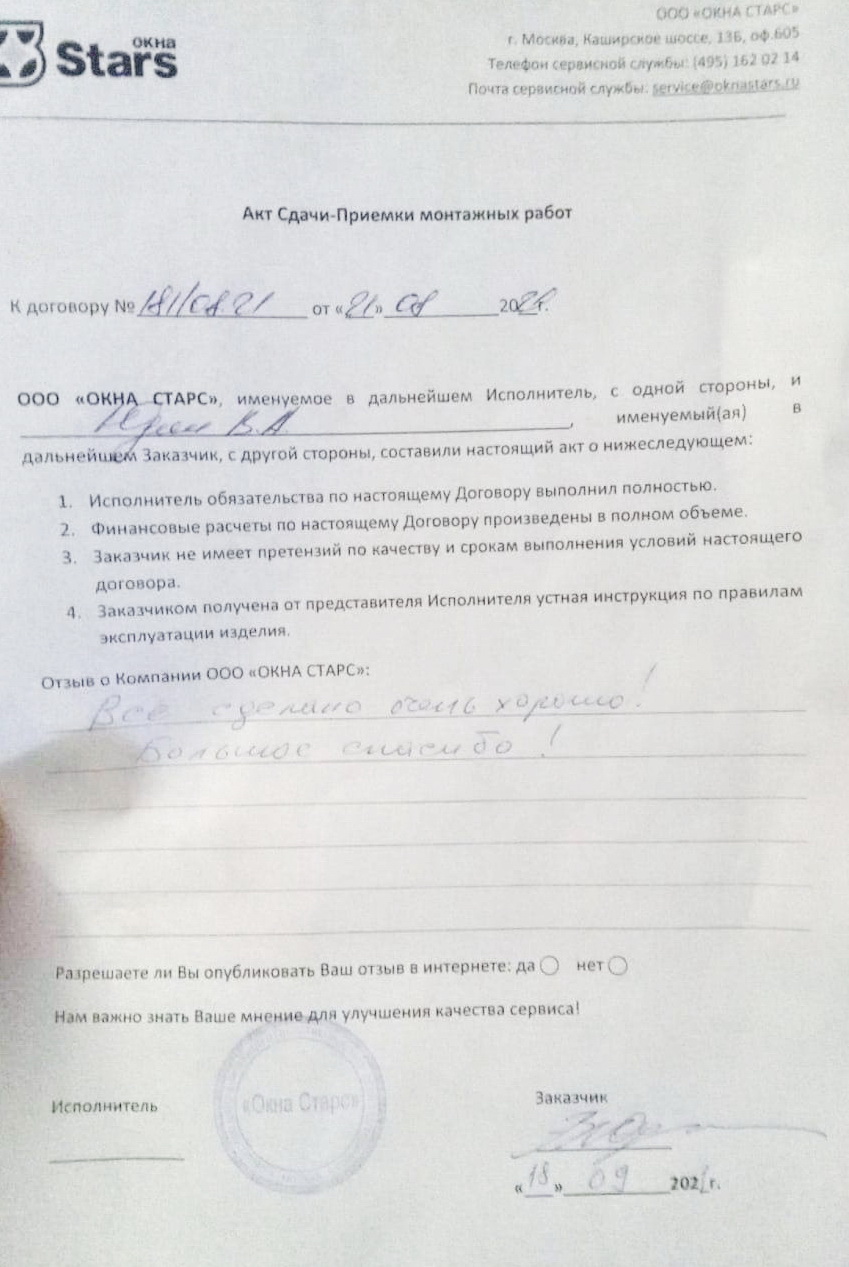 ОКНА
Stars
ООО «ОКНА СТАРС»
г. Москва, Каширское шоссе, 13Б, оф.605
Телефон сервисной службы: (495) 162 02 14
Почта сервисной службы: service@oknastars.ru
Акт Сдачи-Приемки монтажных работ
К договору № 181/08.21 от «21» 08 2021г.
ООО «ОКНА СТАРС», именуемое в дальнейшем Исполнитель, с одной стороны, и
В.А , именуемый(ая) в
дальнейшем Заказчик, с другой стороны, составили настоящий акт о нижеследующем:
1. Исполнитель обязательства по настоящему Договору выполнил полностью.
2. Финансовые расчеты по настоящему Договору произведены в полном объеме.
3. Заказчик не имеет претензий по качеству и срокам выполнения условий настоящего
договора.
4. Заказчиком получена от представителя Исполнителя устная инструкция по правилам
эксплуатации изделия.
Отзыв о Компании ООО «ОКНА СТАРС»:
Всё сделано очень хорошо!
Большое спасибо!
Разрешаете ли Вы опубликовать Ваш отзыв в интернете: да нет
Нам важно знать Ваше мнение для улучшения качества сервиса!
Исполнитель
«Окна Старс»
Заказчик
«18» 09 2021г.